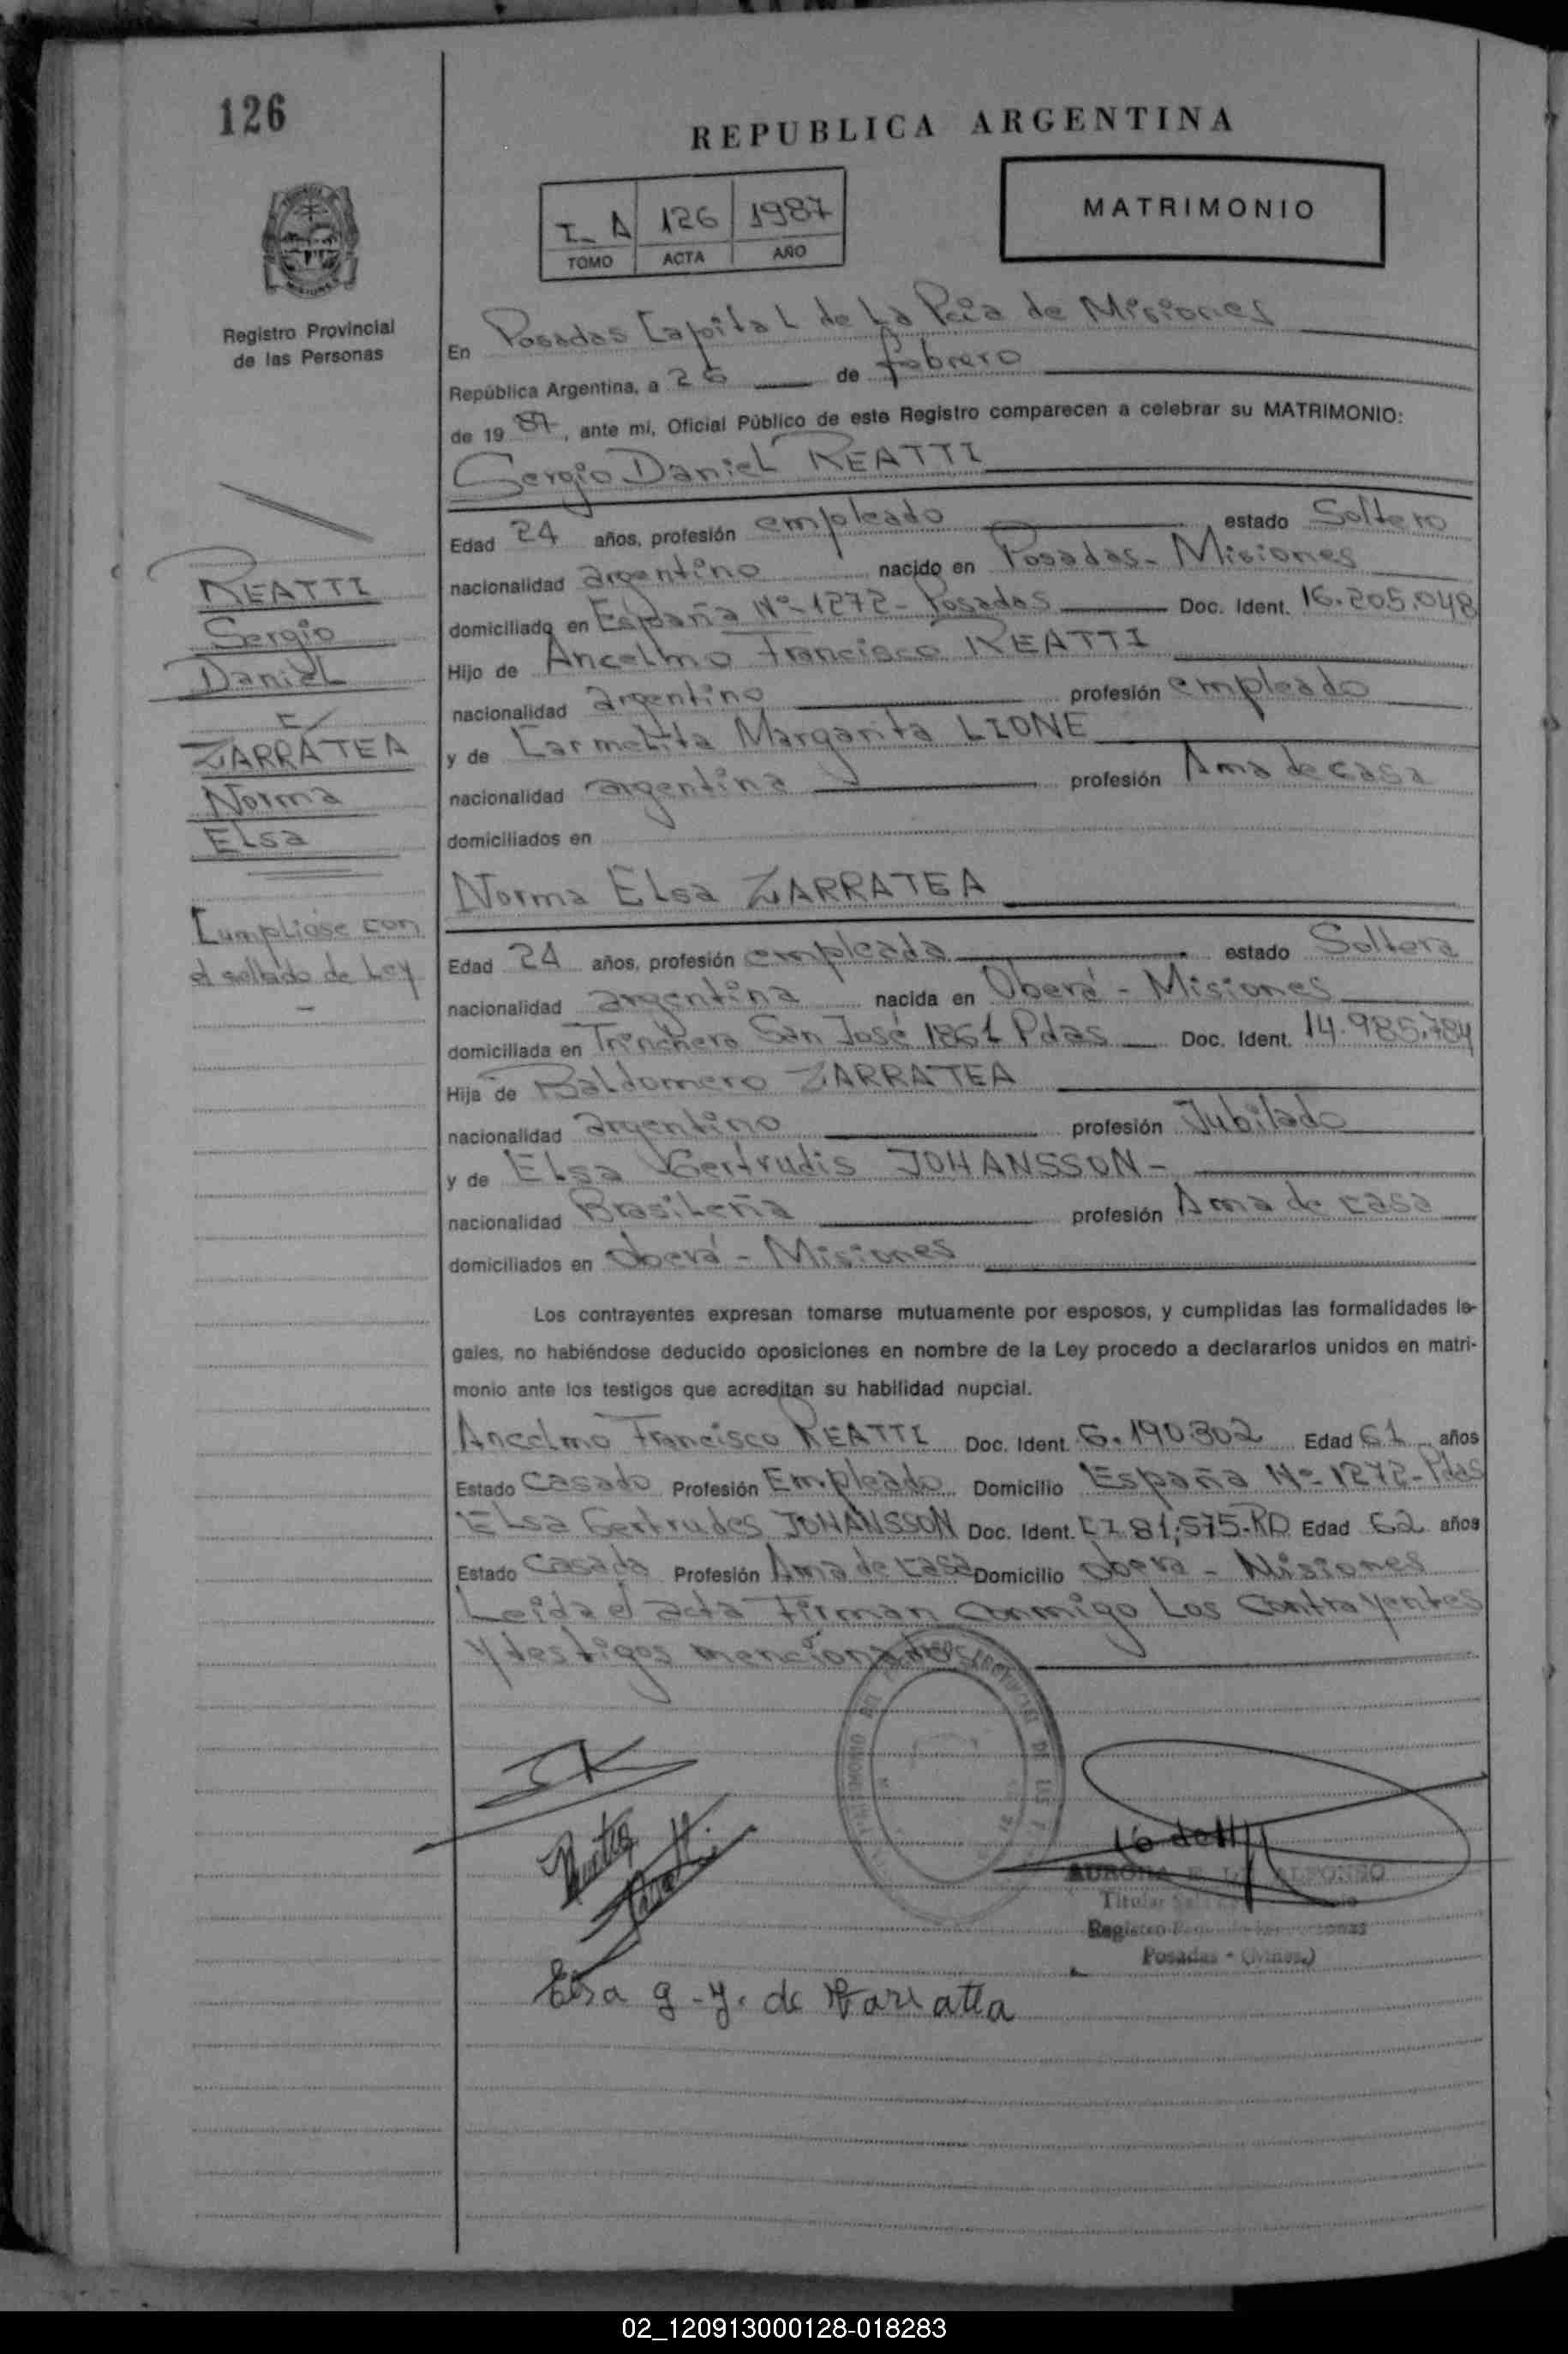 126
REPUBLICA ARGENTINA
I_ A 126 1987
TOMO ACTA AÑO
MATRIMONIO
MISIONES
Registro Provincial
de las Personas
En Posadas Capital de La Pcia de Misiones
República Argentina, a 26 de febrero
de 19 87, ante mí, Oficial Público de este Registro comparecen a celebrar su MATRIMONIO:
Sergio Daniel REATTI
Edad 24 años, profesión empleado estado Soltero
nacionalidad argentino nacido en Posadas - Misiones
domiciliado en España Nº 1272 - Posadas Doc. Ident. 16.205.048
Hijo de Ancelmo Francisco REATTI
nacionalidad argentino profesión empleado
y de Carmelita Margarita LIONE
nacionalidad argentina profesión Ama de casa
domiciliados en
REATTI
Sergio
Daniel
c/
ZARRATEA
Norma
Elsa
Cumpliose con
el sellado de Ley
Norma Elsa ZARRATEA
Edad 24 años, profesión empleada estado Soltera
nacionalidad argentina nacida en Oberá - Misiones
domiciliada en Trinchera San José 1861 Pdas Doc. Ident. 14.985.784
Hija de Baldomero ZARRATEA
nacionalidad argentino profesión Jubilado
y de Elsa Gertrudis JOHANSSON -
nacionalidad Brasileña profesión Ama de casa
domiciliados en Oberá - Misiones
Los contrayentes expresan tomarse mutuamente por esposos, y cumplidas las formalidades le-
gales, no habiéndose deducido oposiciones en nombre de la Ley procedo a declararlos unidos en matri-
monio ante los testigos que acreditan su habilidad nupcial.
Ancelmo Francisco REATTI Doc. Ident. 6.190.802 Edad 61 años
Estado Casado Profesión Empleado Domicilio España Nº 1272 - Pdas
Elsa Gertrudes JOHANSSON Doc. Ident. CI 81,575-RD Edad 62 años
Estado Casada Profesión Ama de casa Domicilio Oberá - Misiones
Leida el acta Firman conmigo Los Contrayentes
y testigos mencionados
AURORA E. ALFONSO
Titular
Registro Personas
Posadas - (Mnes.)
Elsa g. y. de
02_120913000128-018283